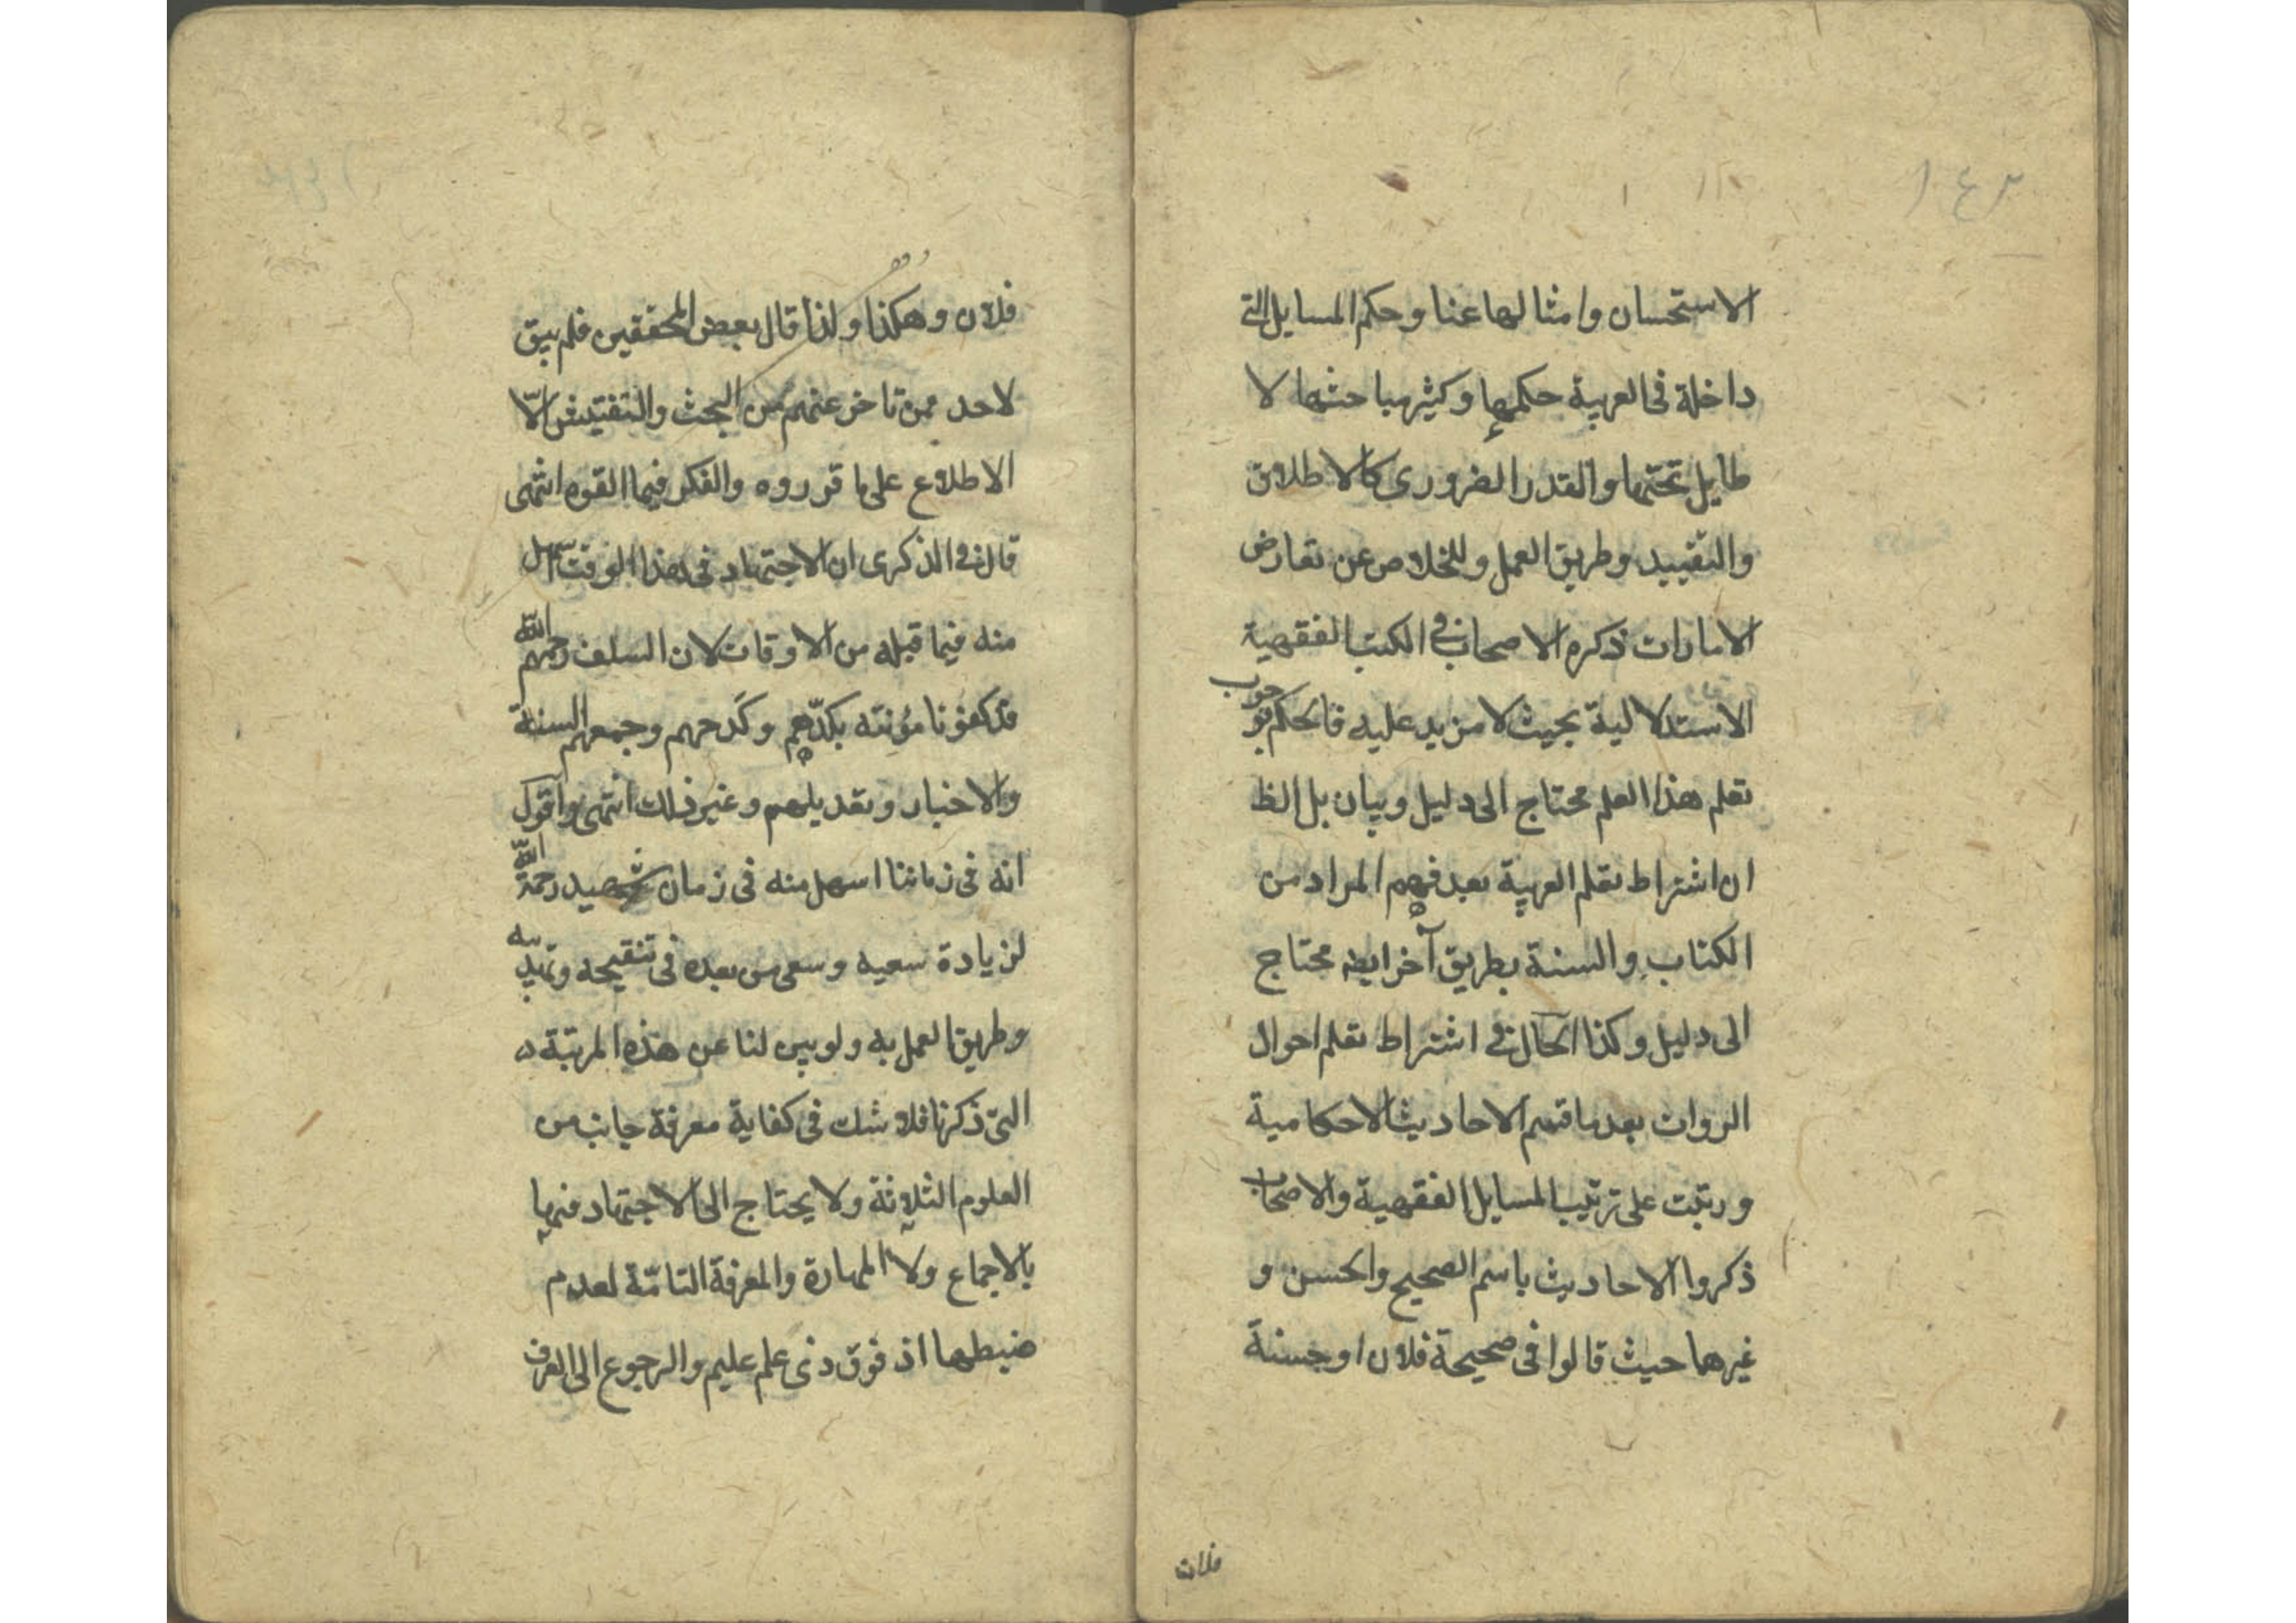 ١٤٢
الاستحسان وامثالها عنا وحكم المسايل التى
داخلة فى العربية حكمها وكثير مباحثها لا
طايل تحتها والقدر الضرورى كالاطلاق
والتقييد وطريق العمل وللخلاص عن تعارض
الامارات ذكره الاصحاب فى الكتب الفقهية
الاستدلالية بحيث لا مزيد عليه فالحكم بوجوب
تعلم هذا العلم محتاج الى دليل وبيان بل الظ
ان اشتراط تعلم العربية بعد فهم المراد من
الكتاب والسنة بطريق آخر ايضا محتاج
الى دليل وكذا الحال فى اشتراط تعلم احوال
الروات بعد ما قسم الاحاديث الاحكامية
ورتبت على ترتيب المسايل الفقهية والاصحاب
ذكروا الاحاديث باسم الصحيح والحسن و
غيرهما حيث قالوا فى صحيحة فلان او حسنة
فلان
فلان وهكذا ولذا قال بعض المحققين فلم يبق
لاحد ممن تاخر عنهم من البحث والتفتيش الّا
الاطلاع على ما قرروه والفكر فيما القوه انتهى
قال فى الذكرى ان الاجتهاد فى هذا الوقت اسهل
منه فيما قبله من الاوقات لان السلف رحمهم الله
قد كفونا مؤنته بكدّهم وكدحهم وجمعهم السنة
والاخبار وتعديلهم وغير ذلك انتهى واقول
انه فى زماننا اسهل منه فى زمان شهيد رحمة الله
لزيادة سعيه وسعى من بعده فى تنقيحه وتهذيبه
وطريق العمل به ولو بين لنا عن هذه المرتبة
التى ذكرنا فلا شك فى كفاية معرفة جانب من
العلوم الثلاثة ولا يحتاج الى الاجتهاد فيها
بالاجماع ولا المهارة والمعرفة التامّة لعدم
ضبطها اذ فوق ذى علم عليم والرجوع الى العرف